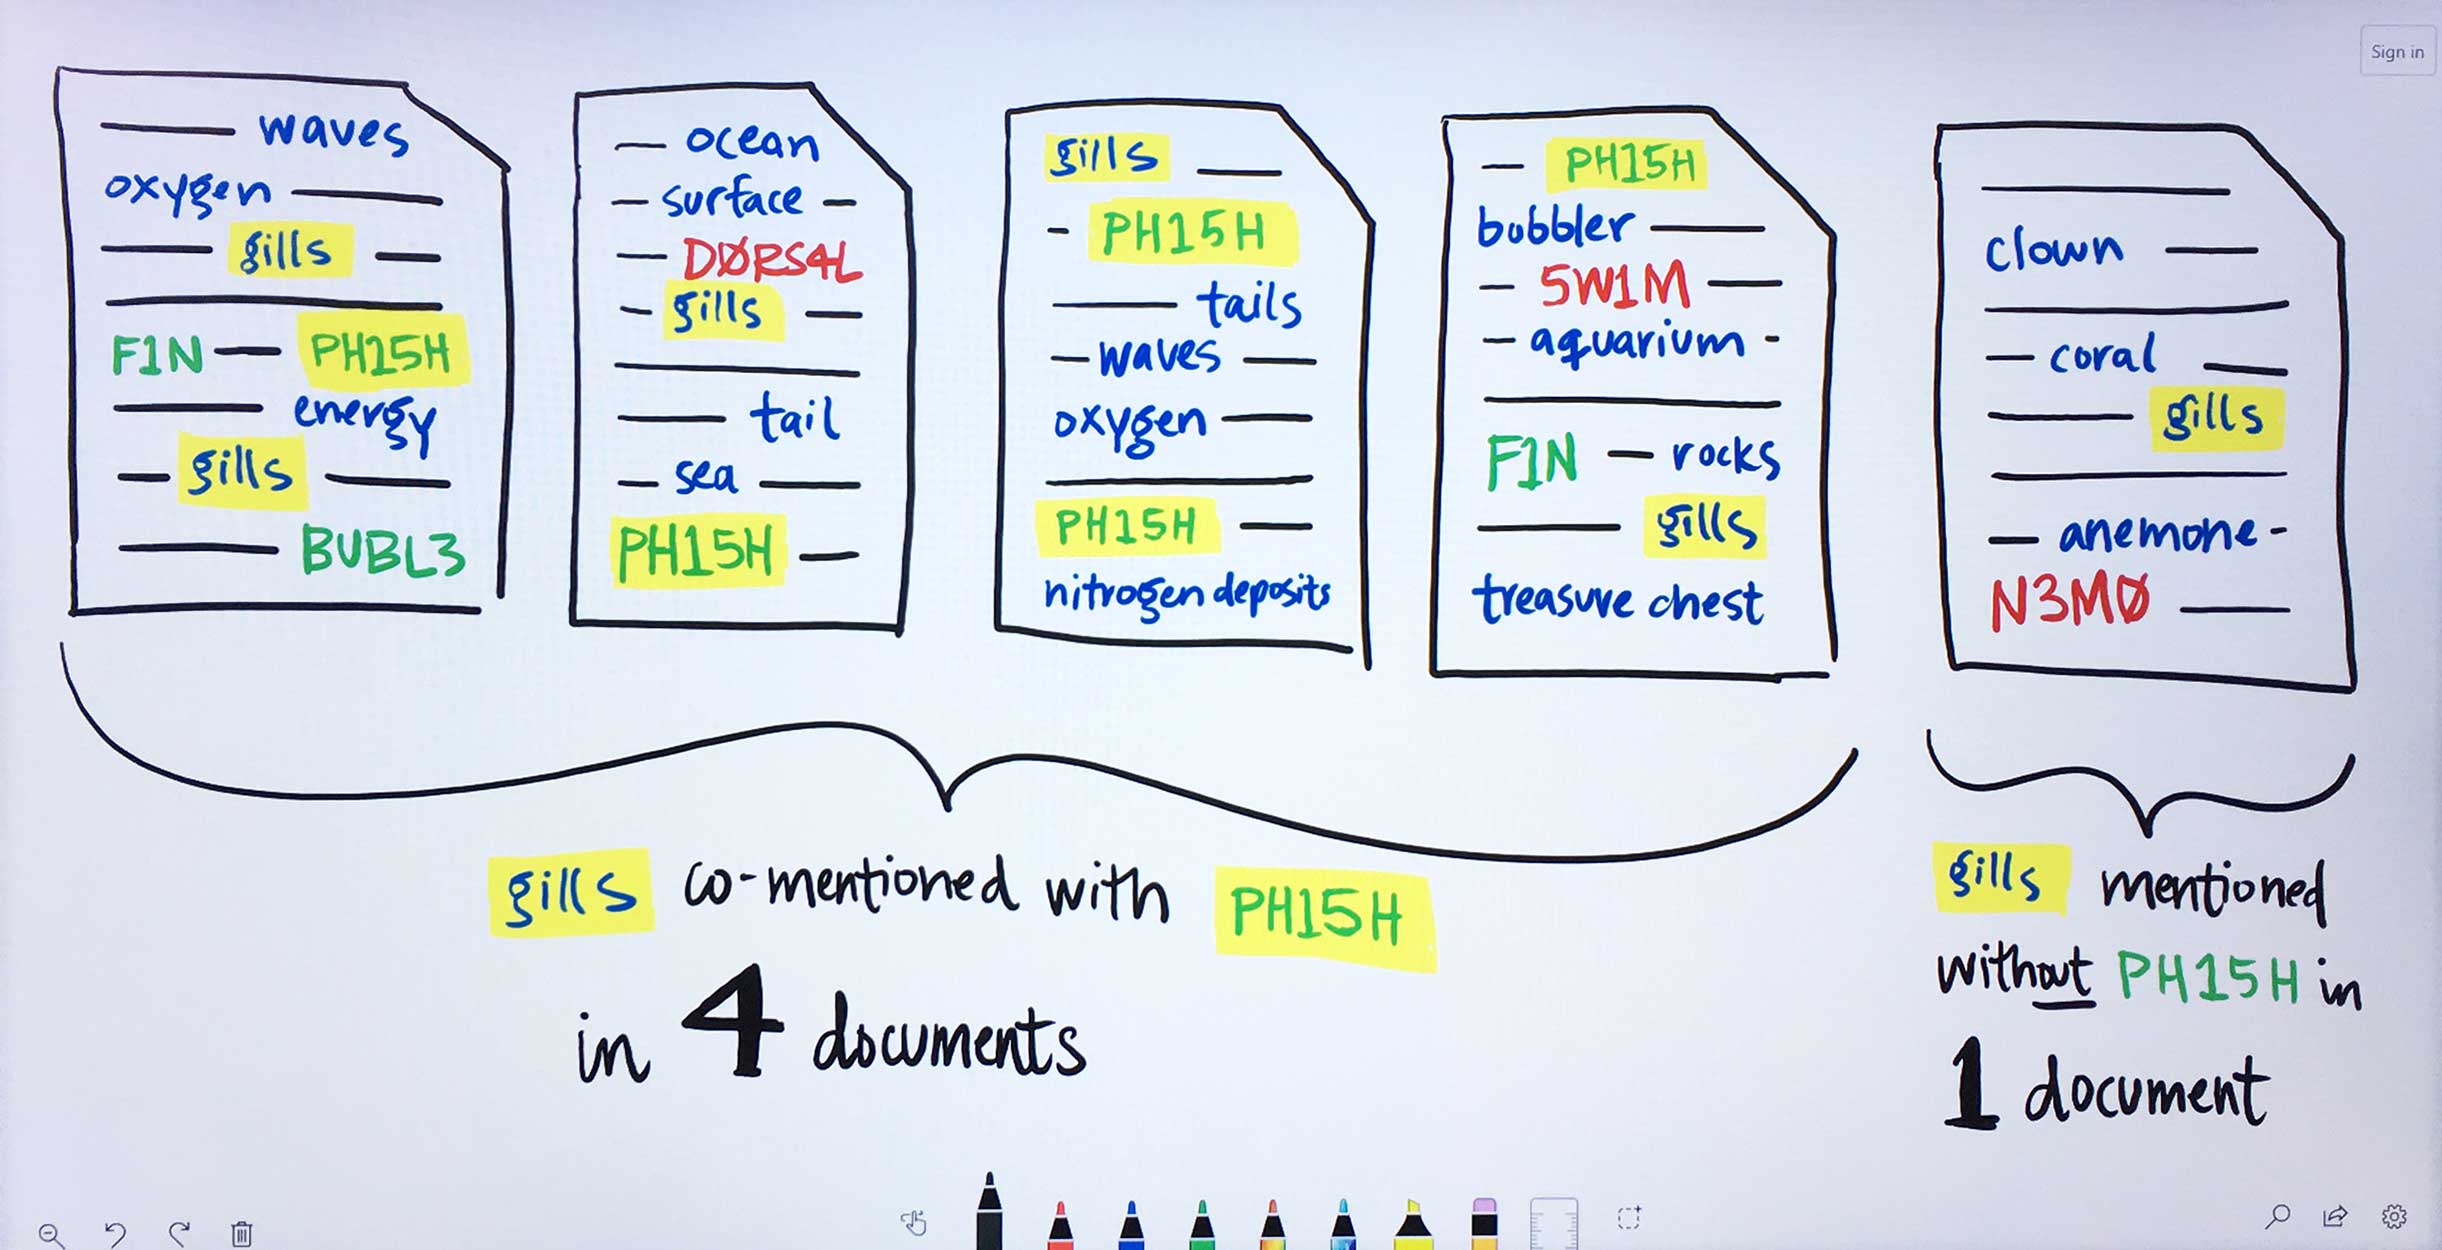 Sign in
waves
oxygen
gills
F1N PH15H
energy
gills
BUBL3
ocean
surface
DØRS4L
gills
tail
sea
PH15H
gills
PH15H
tails
waves
oxygen
PH15H
nitrogen deposits
PH15H
bubbler
5W1M
aquarium
F1N rocks
gills
treasure chest
clown
coral
gills
anemone
N3MØ
gills co-mentioned with PH15H
in 4 documents
gills mentioned
without PH15H in
1 document